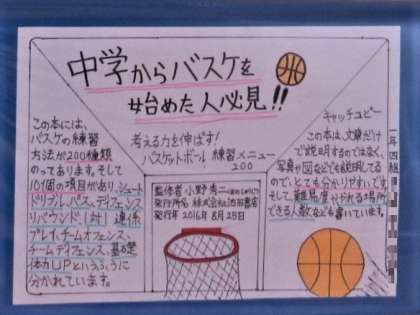 中学からバスケを
始めた人必見!!
考える力を伸ばす!
バスケットボール 練習メニュー
200
この本には、
バスケの練習
方法が200種類
のっております。そして
10個の項目があり、シュート
ドリブル、パス、ディフェンス
リバウンド、1対1 連係
プレイ、チームオフェンス、
チームディフェンス、基礎
体力UPというふうに
分かれています。
監修者 小野秀二
発行所名 株式会社池田書店
発行年 2016年8月25日
キャッチコピー
この本は、文章だけ
で説明するのではなく、
写真や図などでも説明してる
ので、とても分かりやすいです。
そして、難易度やられる場所
できる人数なども書いています。
一年四組